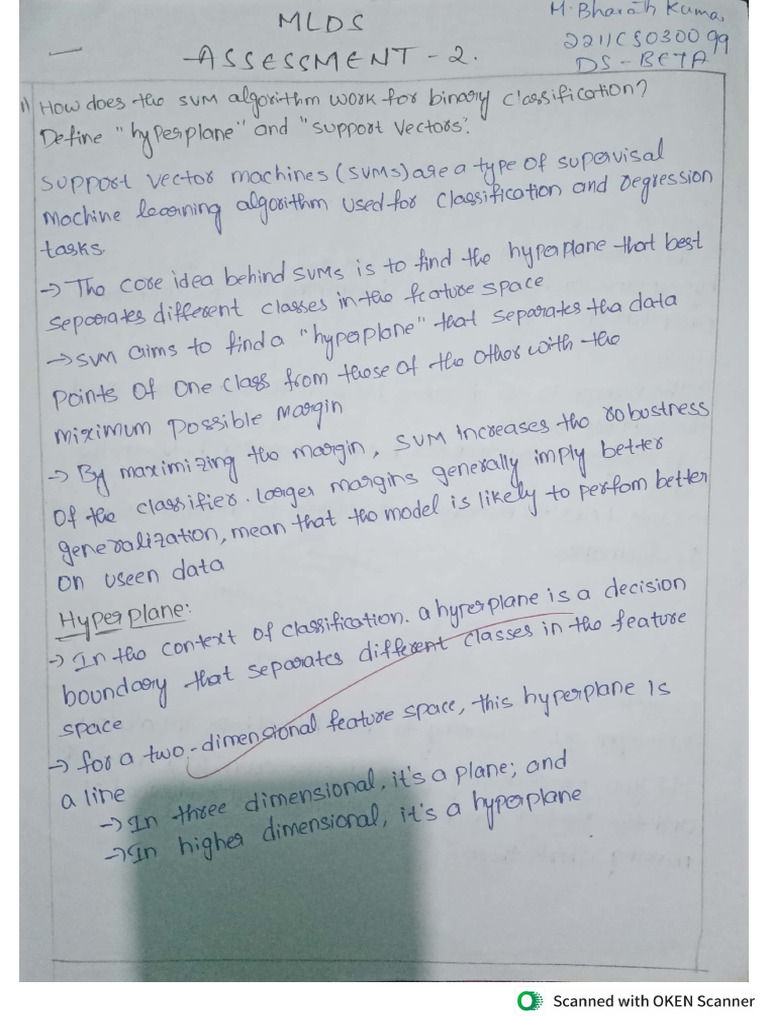 MLDS
ASSESSMENT - 2.
M. Bharath Kumar
2211CS030099
DS - BETA
1) How does the SVM algorithm work for binary classification?
Define "hyperplane" and "support vectors".
Support vector machines (SVMs) are a type of supervisal
machine learning algorithm used for classification and regression
tasks.
→ The core idea behind SVMs is to find the hyperplane that best
separates different classes in the feature space
→ SVM aims to find a "hyperplane" that separates the data
points of one class from those of the other with the
miximum possible margin
→ By maximizing the margin, SVM increases the robustness
of the classifier. larger margins generally imply better
generalization, mean that the model is likely to perfom better
on useen data
Hyperplane:
→ In the context of classification. a hyrerplane is a decision
boundary that separates different classes in the feature
space
→ for a two-dimensional feature space, this hyperplane is
a line
→ In three dimensional, it's a plane; and
→ In higher dimensional, it's a hyperplane
Scanned with OKEN Scanner